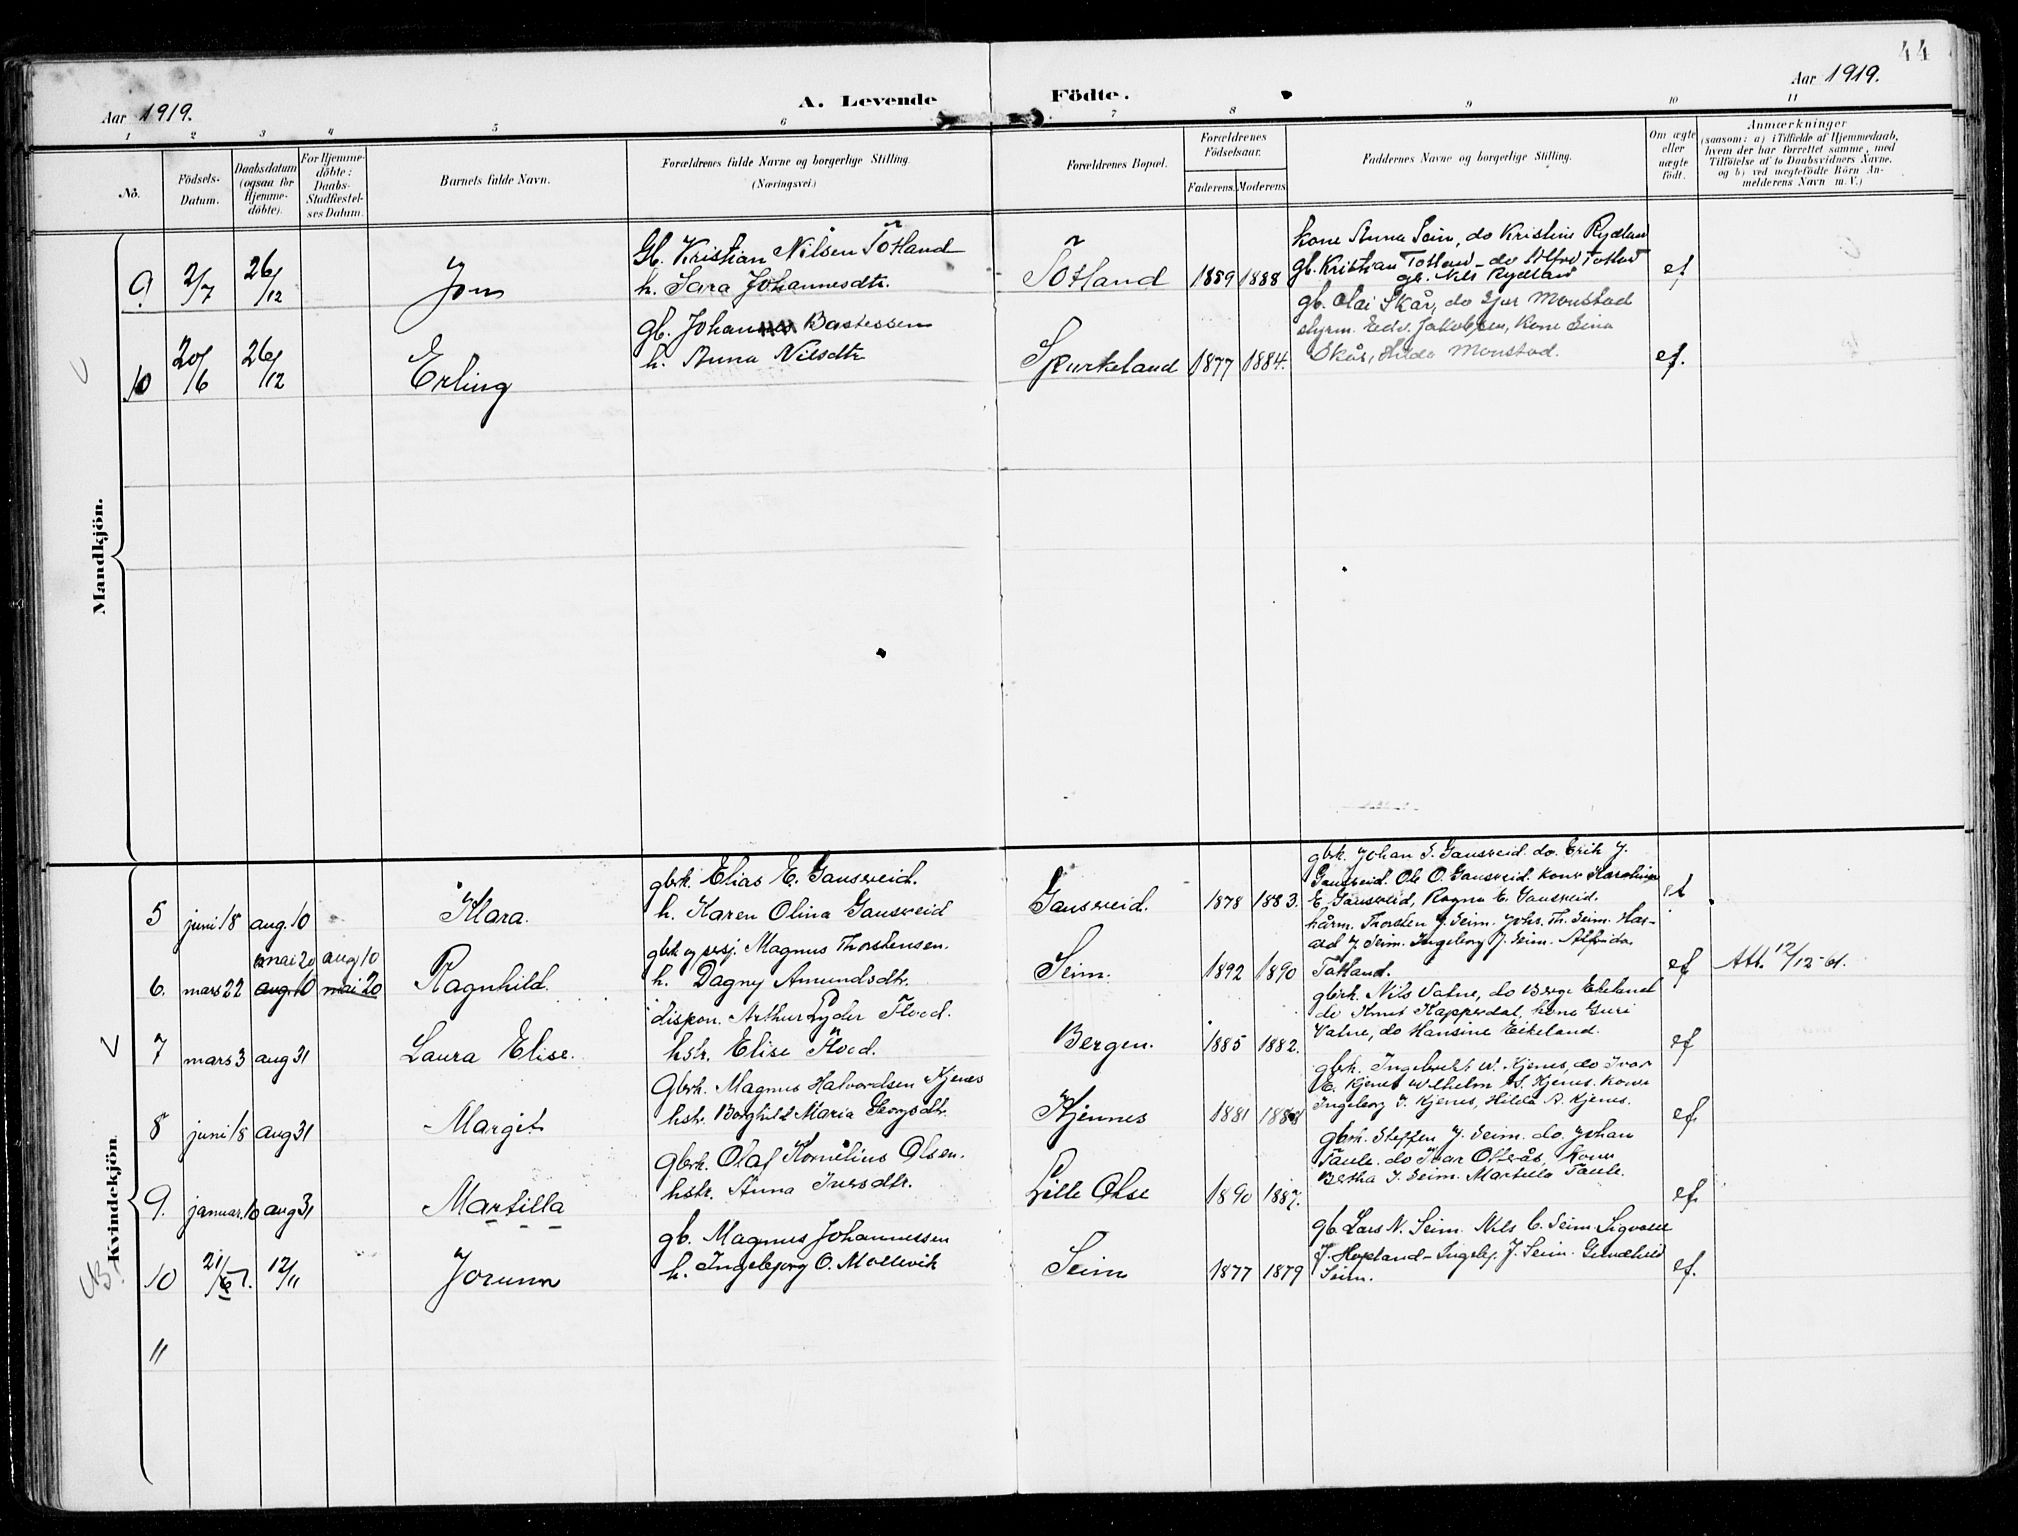 44
Aar 1919.
A. Levende Födte.
Aar 1919.
1 2 3 4 5 6 7 8 9 10 11
No.
Födsels-Datum.
Daabsdatum (ogsaa for Hjemme-döbte).
For Hjemme-döbte: Daabs-Stadfæstel-ses Datum.
Barnets fulde Navn.
Forældrenes fulde Navne og borgerlige Stilling.
(Næringsvei.)
Forældrenes Bopæl.
Forældrenes Födselsaar.
Faderens. Moderens.
Faddernes Navne og borgerlige Stilling.
Om ægte eller uægte födt.
Anmærkninger
(saasom: a) i Tilfælde af Hjemmedaab,
hvem der har forrettet samme, med
Tilföielse af to Daabsvidners Navne,
og b) ved uægtefödte Börn An-
melderens Navn m. V.)
Mandkjön.
9 2/7 26/12 Jon
Gb. Kristian Nilsen Totland
h. Sara Johannesdtr.
Totland 1889 1888
kone Anna Seim, do Kristine Rydland
gb. Kristian Totland - do Alfred Totland
gb. Nils Rydland
ef
10 20/6 26/12 Erling
gb. Johannes Bastessen
h. Anna Nilsdtr
Skurkeland 1877 1884.
gb. Olai Skår, do Ivar Monstad
styrm. Edv. Jakobsen, kone Sina
Skår, Hilda Monstad.
ef.
Kvindekjön.
5 juni 18 aug. 10 Klara.
gbrk. Elias E. Gausereid.
h. Karen Olina Gausereid
Gausereid. 1878 1883.
gbrk. Johan S. Gausereid. do. Erik J.
Gausereid. Ole O. Gausereid. kone Karoline
E. Gausereid, Ragna E. Gausereid.
6. mars 22 mai 20 aug 10 aug. 10 mai 20 Ragnhild.
gbrk og sesj. Magnus Thorstensen.
h. Dagny Amundsdtr.
Seim. 1892 1890
hårm. Thorsten J. Seim. Johs. Th. Seim. Har-
ald J. Seim. Ingeborg J. Seim. Alfrida
Totland.
ef
Att. 12/12-61.
7 mars 3 aug 31 Laura Elise.
dispon. Arthur Lyder
hstr. Elise
Bergen. 1885 1882.
gbrk. Nils Valne, do Børge Ekeland
do Knut Kapperdal, kone Guri
Valne, do Hansine Eikeland.
ef
8 juni 18 aug 31 Margit
Gbrk. Magnus Halvordsen Kjenes
hstr. Borghild Maria Georgsdtr.
Kjennes 1881
gbrk. Ingebrekt W. Kjenes, do Ivar
E. Kjenes Wilhelm S. Kjenes. kone
Ingeborg I. Kjenes, Hilda A. Kjenes.
ef
9. januar. 10 aug 31 Martilla
gbrk. Olaf Kornelius Olsen.
hstr. Anna Iversdtr.
Lille Olse 1890 1887.
gbrk. Steffen J. Seim. do. Johan
Taule. do Ivar Otterås, kone
Bertha J. Seim. Martilla Taule.
ef.
10 12/11 Jorunn
gb. Magnus Johannessen
h. Ingebjørg O. Mollevik
Seim 1877 1879
gb. Lars N. Seim. Nils C. Seim. Sigvald
J. Hopland - Ingebj. J. Seim.
Seim.
ef.
11